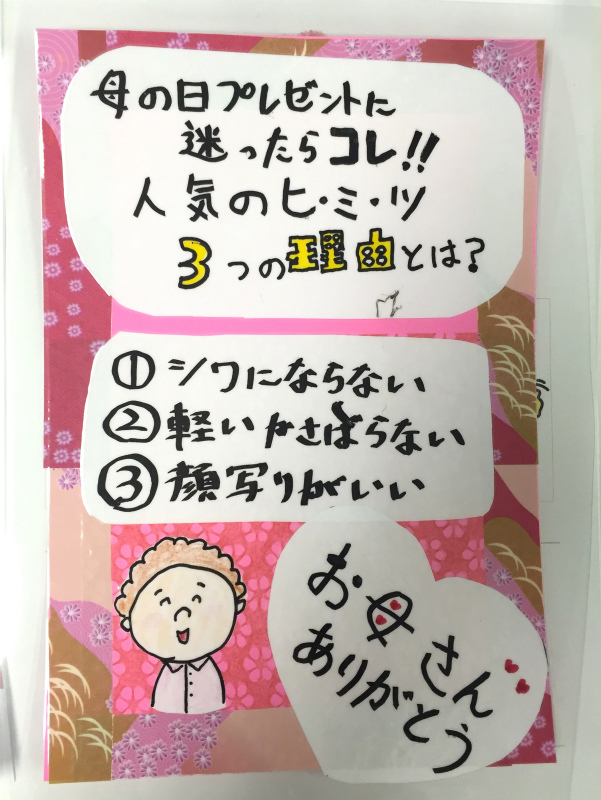 母の日プレゼントに
迷ったらコレ!!
人気のヒ・ミ・ツ
3つの理由とは?
①シワにならない
②軽いかさばらない
③顔写りがいい
お母さん
ありがとう